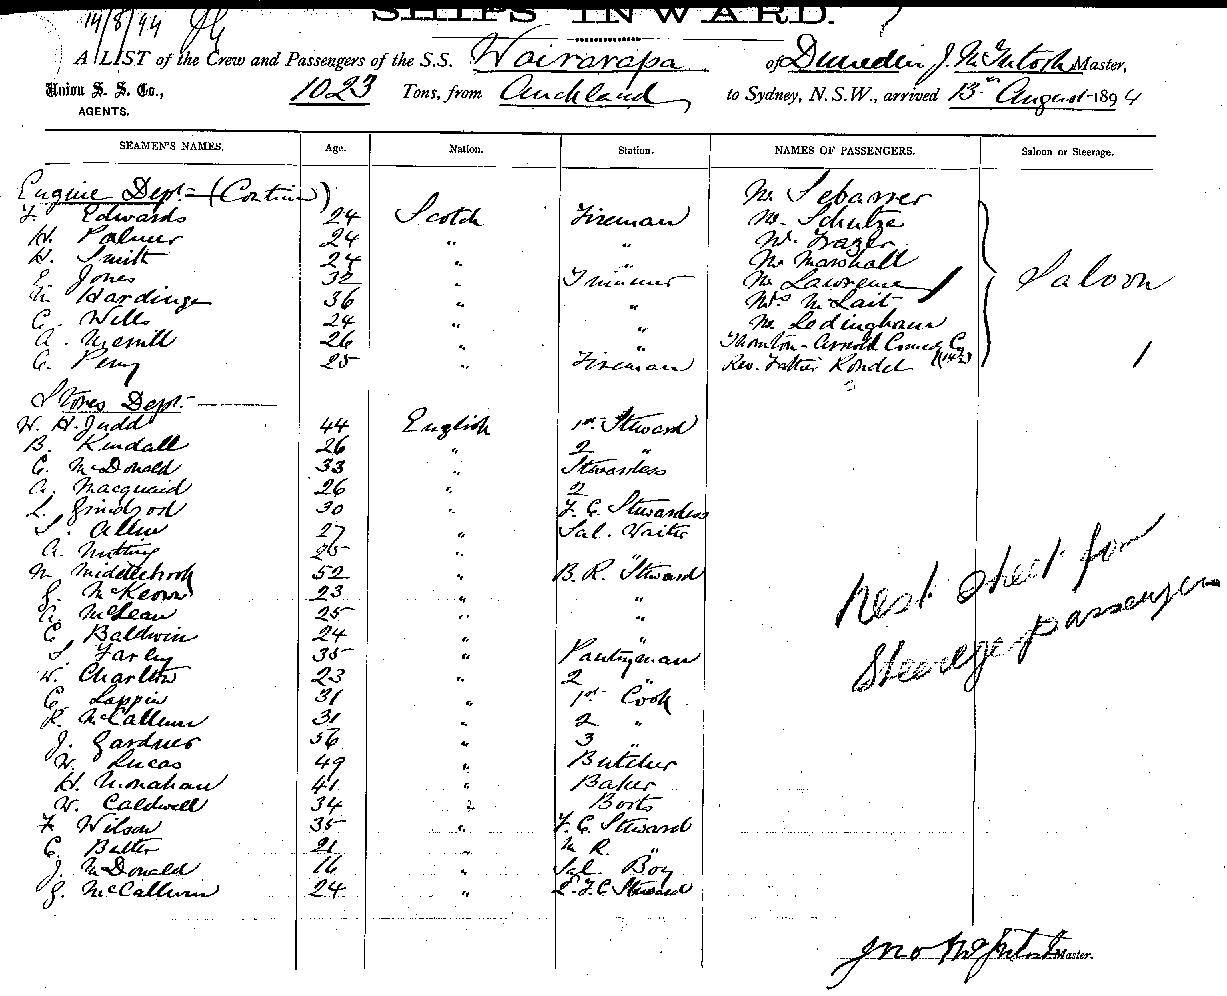 14/8/94
SHIPS INWARD.
A LIST of the Crew and Passengers of the S.S. Wairarapa of Dunedin J. McIntosh Master,
Union S. S. Co., 1023 Tons, from Auckland, to Sydney, N.S.W., arrived 13th August 1894
AGENTS.
SEAMEN'S NAMES. Age. Nation. Station. NAMES OF PASSENGERS. Saloon or Steerage.
Engine Dept. (Contin) Mr
F. Edwards 24 Scotch Fireman Mr. Schutze
H. Palmer 24 " " Mr. Frazer
H. Smith 24 " " Mr Marshall
E. Jones 32 " Trimmer Mr Lawrence Saloon
Hardinge 36 " " Mrs M. Lait
C. Wills 24 " " Mr Ledingham
A. Merritt 26 " " Thornton-Arnold Comedy Co (14)
C. Perry 25 " Fireman Rev. Father Rondel 1
Stores Dept.
W. H. Judd 44 English 1st Steward
B. Kendall 26 " 2 "
C. McDonald 33 " Stewardess
A. Macquaid 26 " 2 "
L. Grindrod 30 " F. C. Stewardess
S. Allen 27 " Sal. Waiter
A. Nutting 25 " "
M. Middlebrook 52 " B. R. Steward
J. McKeown 23 " "
A. McLean 25 " "
C. Baldwin 24 " "
S. Farley 35 " Pantryman
W. Charlton 23 " 2 "
C. Lappin 31 " 1st Cook
R. McCallum 31 " 2 "
J. Gardner 56 " 3 "
W. Lucas 49 " Butcher
H. Monahan 41 " Baker
W. Caldwell 34 " Boots
F. Wilson 35 " F. C. Steward
C. Butter 21 " M. R. "
J. McDonald 16 " Sal Boy
J. McCallum 24 " 2. F. C. Steward
Next sheet for
Steerage passengers
Jno McIntosh Master.